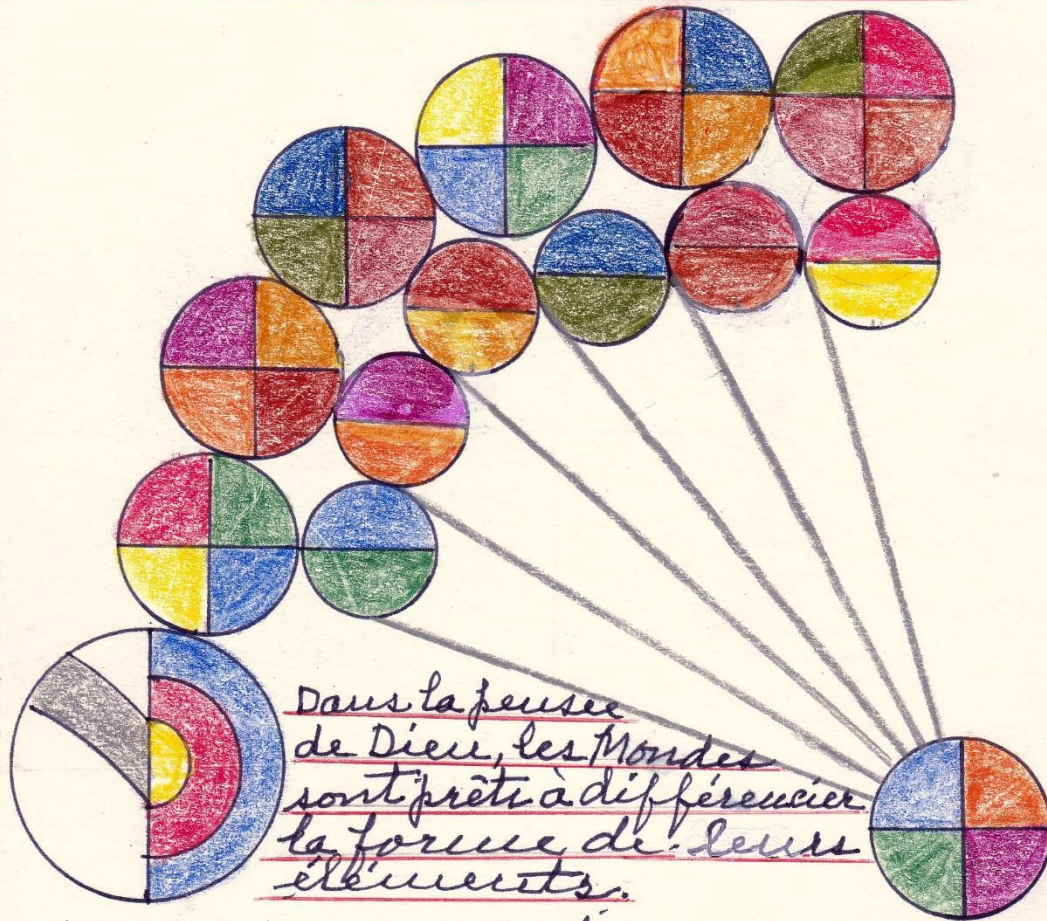 Dans la pensée
de Dieu, les Mondes
sont prêts à différencier
la forme de leurs
éléments.